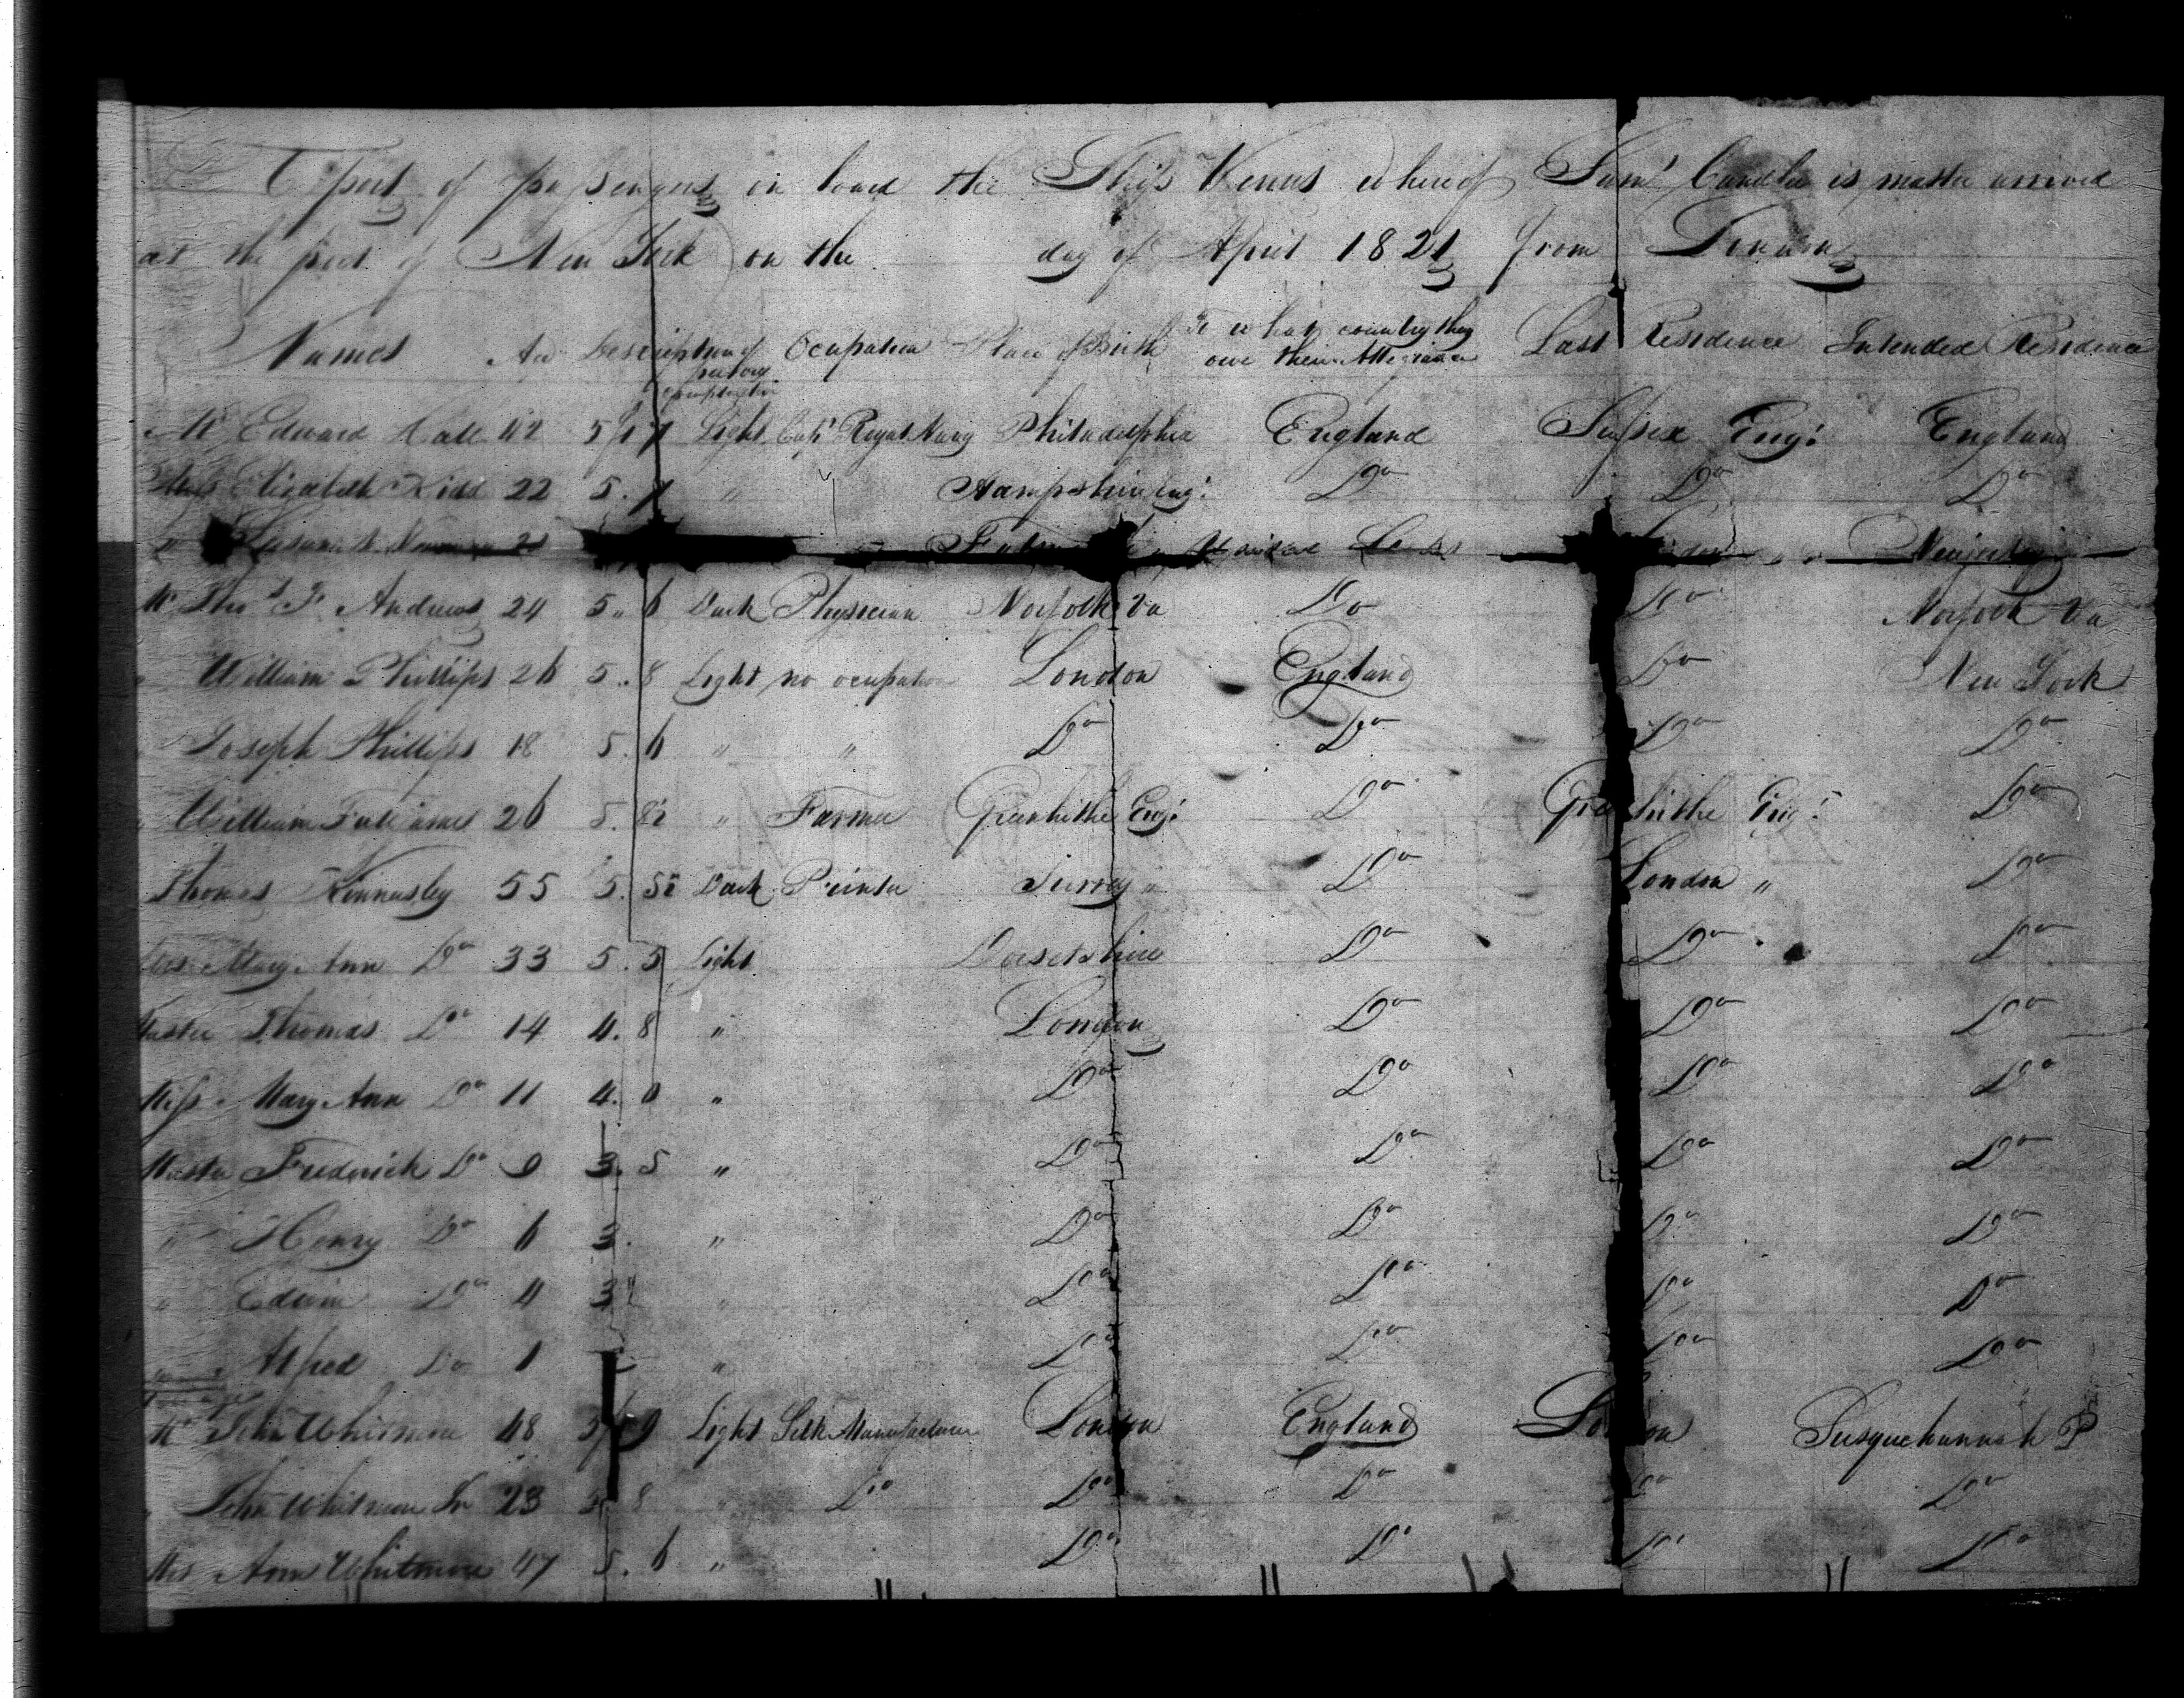 Report of passengers on board the Ship Venus whereof Saml Candler is master arrived
at the port of New York on the day of April 1821 from London
Names Age Description of Ocupation Place of Birth To what country they Last Residence Intended Residence
persons owe their Allegiance
complection
Mr Edward Hall 42 5 ft 7 Light Capt Royal Navy Philadelphia England Sussex Engd England
Miss Elizabeth Kidd 22 5. 7 " Hampshire Engd Do Do Do
" Susan 21 United
Mr Thos F. Andrews 24 5 " 6 Dark Physician Norfolk Va Do Do Norfolk Va
" William Phillips 26 5 .. 8 Light no ocupation London England Do New York
" Joseph Phillips 18 5. 6 " " Do Do Do Do
" William 26 5. 8½ " Farmer Greenhithe Engd Do Greenhithe Engd Do
Thomas Kinnersley 55 5. 5½ Dark Printer Surrey " Do London " Do
Mrs Mary Ann Do 33 5. 5 Light Dorsetshire Do Do Do
Master Thomas Do 14 4. 8 " London Do Do Do
Miss Mary Ann Do 11 4. 0 " Do Do Do Do
Master Frederick Do 9 3. 5 " Do Do Do Do
" Henry Do 6 3. " Do Do Do Do
" Edwin Do 4 3 " Do Do Do Do
" Alfred Do 1 " Do Do Do Do
Mr John Whitmore 48 5 ft 9 Light Silk Manufacturer London England London Susquehannah P
" John Whitmore Jn 23 5 8 " Do Do Do Do Do
Mrs Ann Whitmore 47 5. 6 " Do Do Do Do